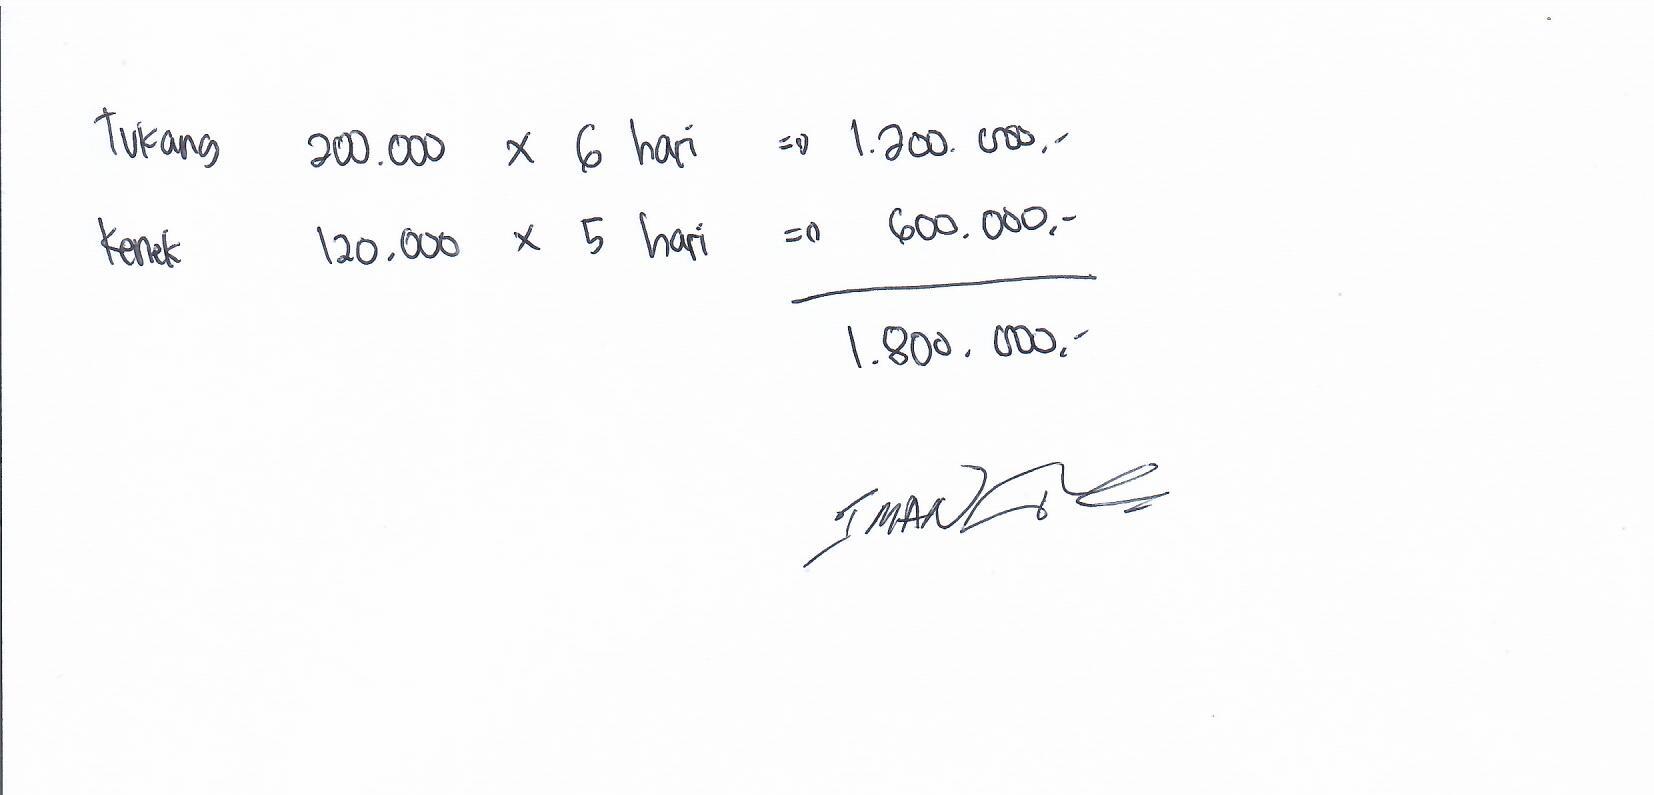 Tukang 200.000 x 6 hari => 1.200.000,-
Kenek 120.000 x 5 hari => 600.000,-
1.800.000,-
IMAN